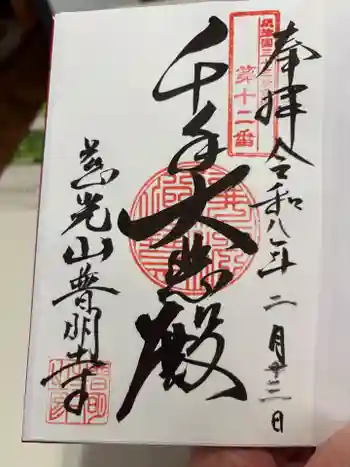 奉拝
令和八年二月廿三日
第十二番
千手大悲殿
慈光山普明寺